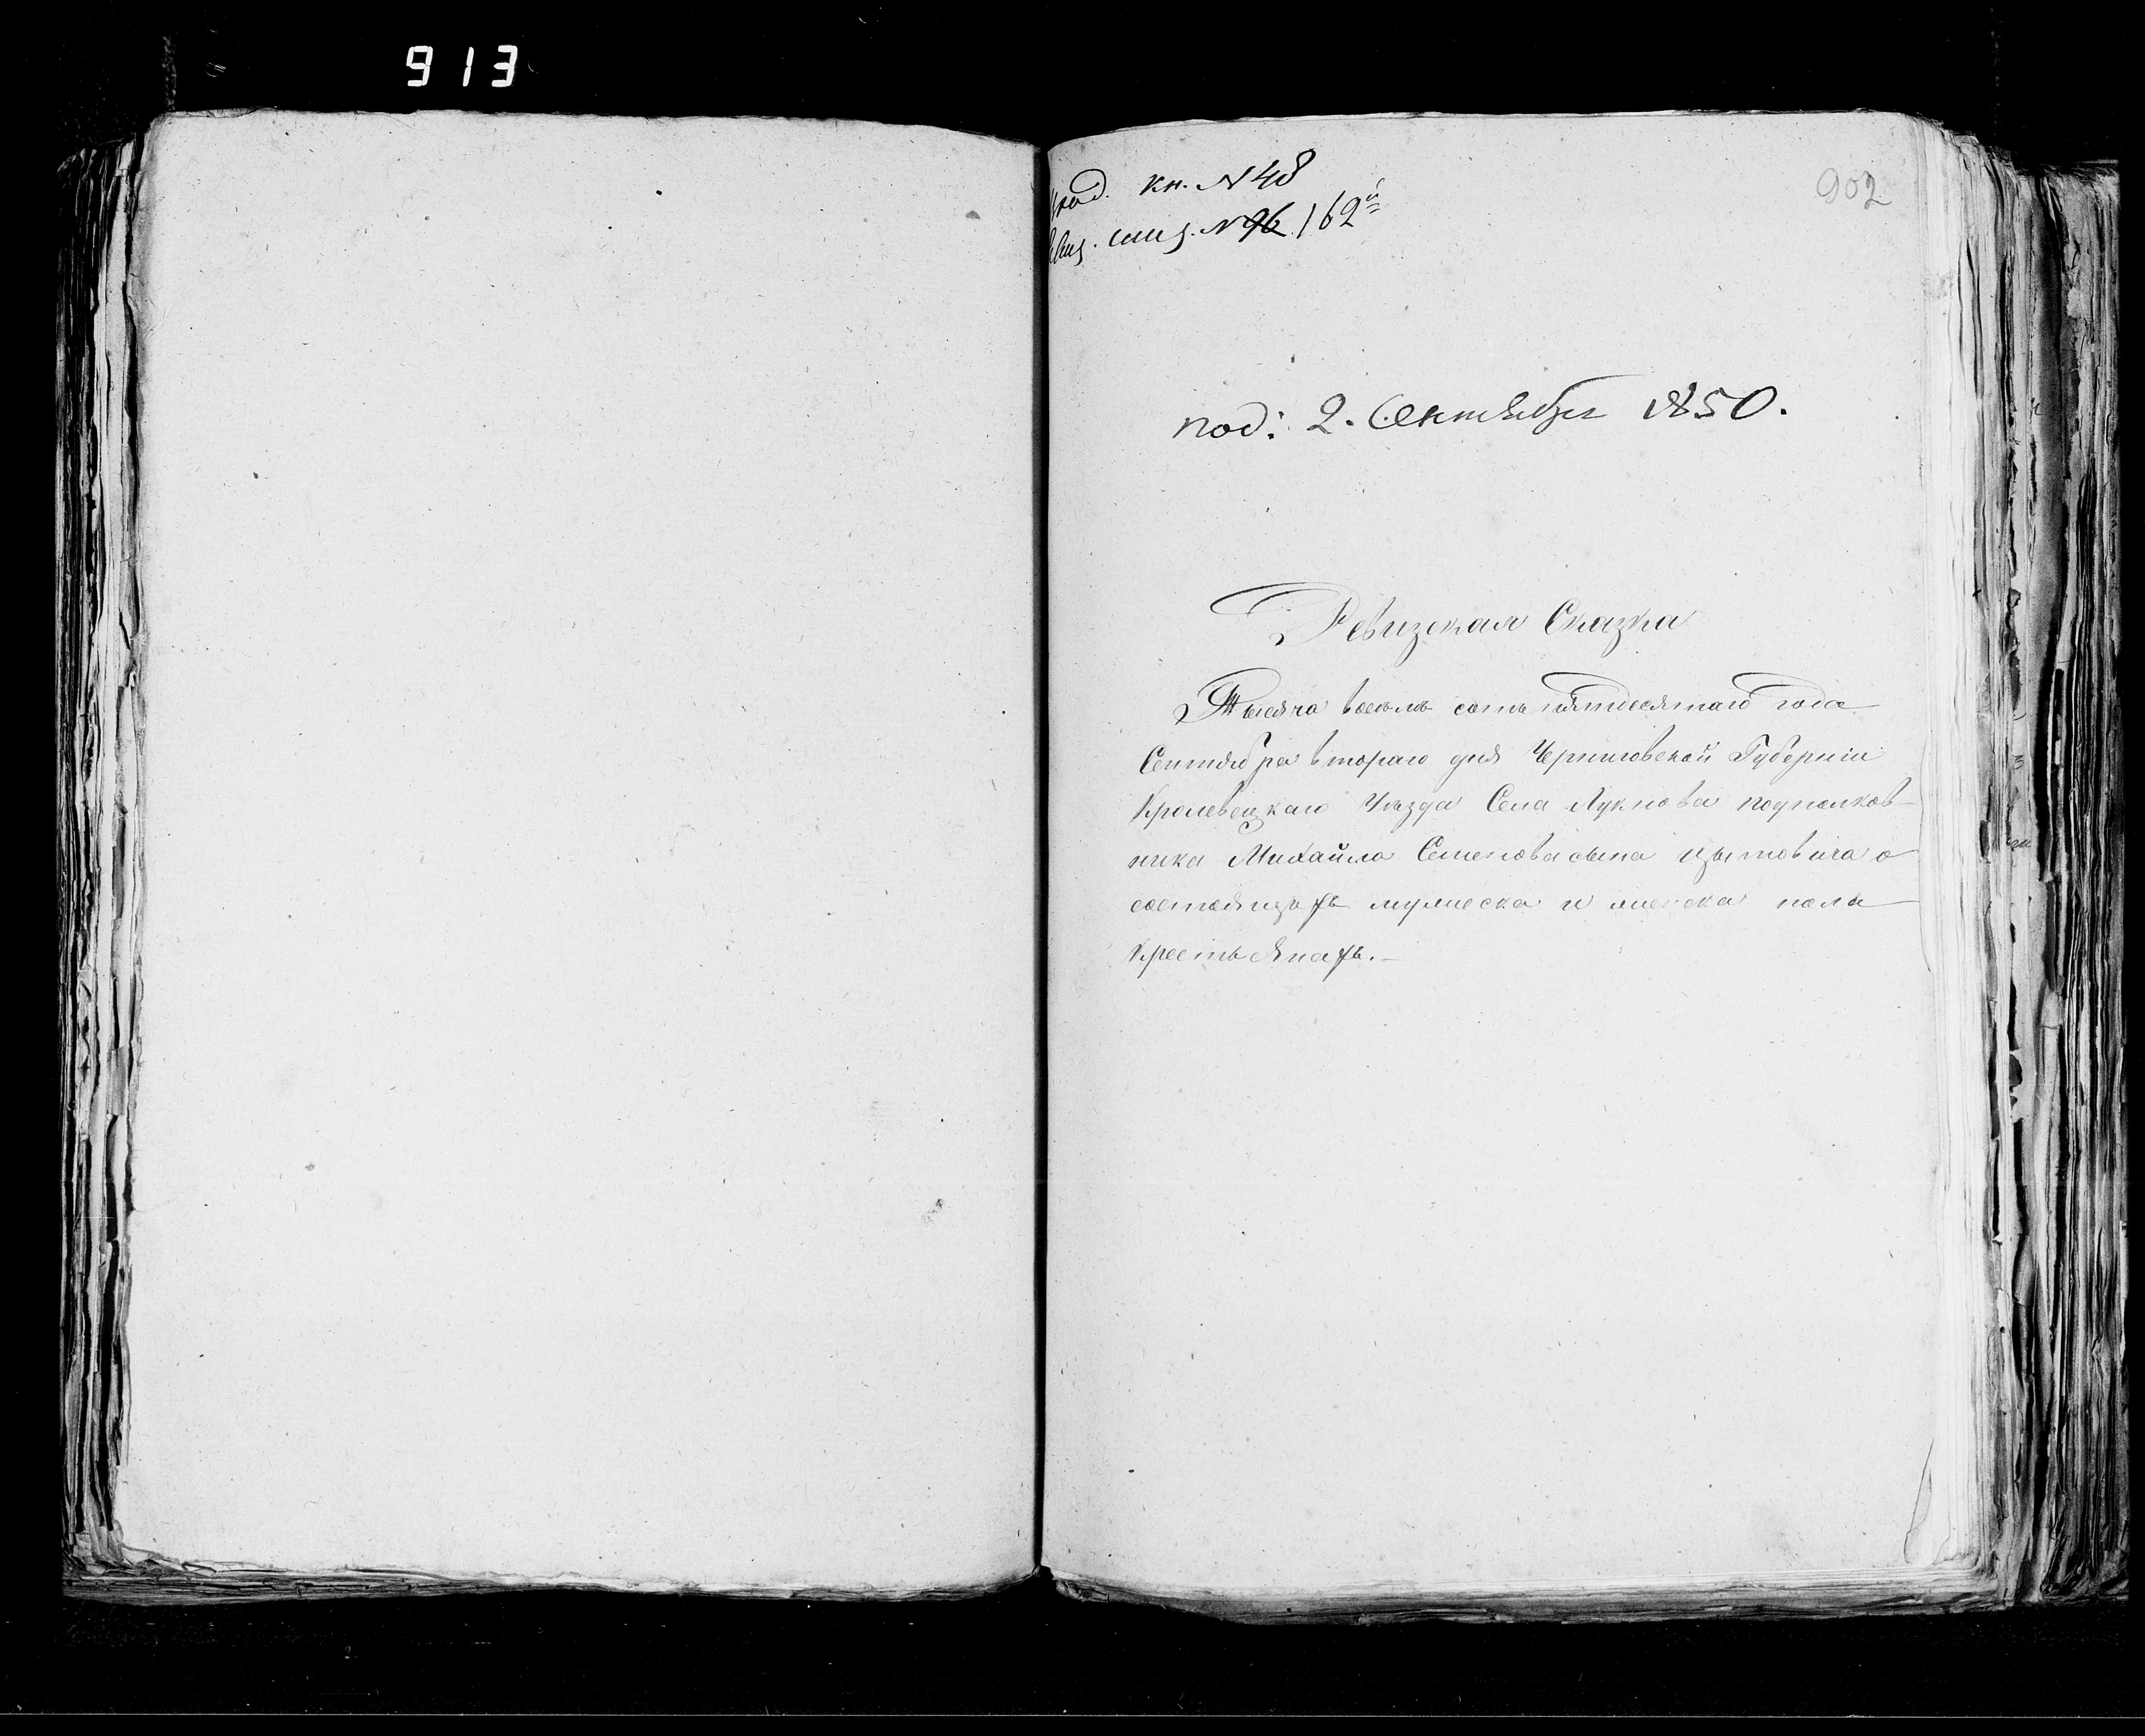 913
902
вход. кн. № 48
№ 96 162й
под: 2. Сентября 1850.
Ревизская Сказка
Тысяча восемь сотъ пятдесятаго года
Сентября втораго дня Черниговской Губерніи
Кролевецкаго Уезда Села Лукнова подполков-
ника Михайла Семенова сына о
состоящихъ мужеска и женска пола
Крестьянахъ.